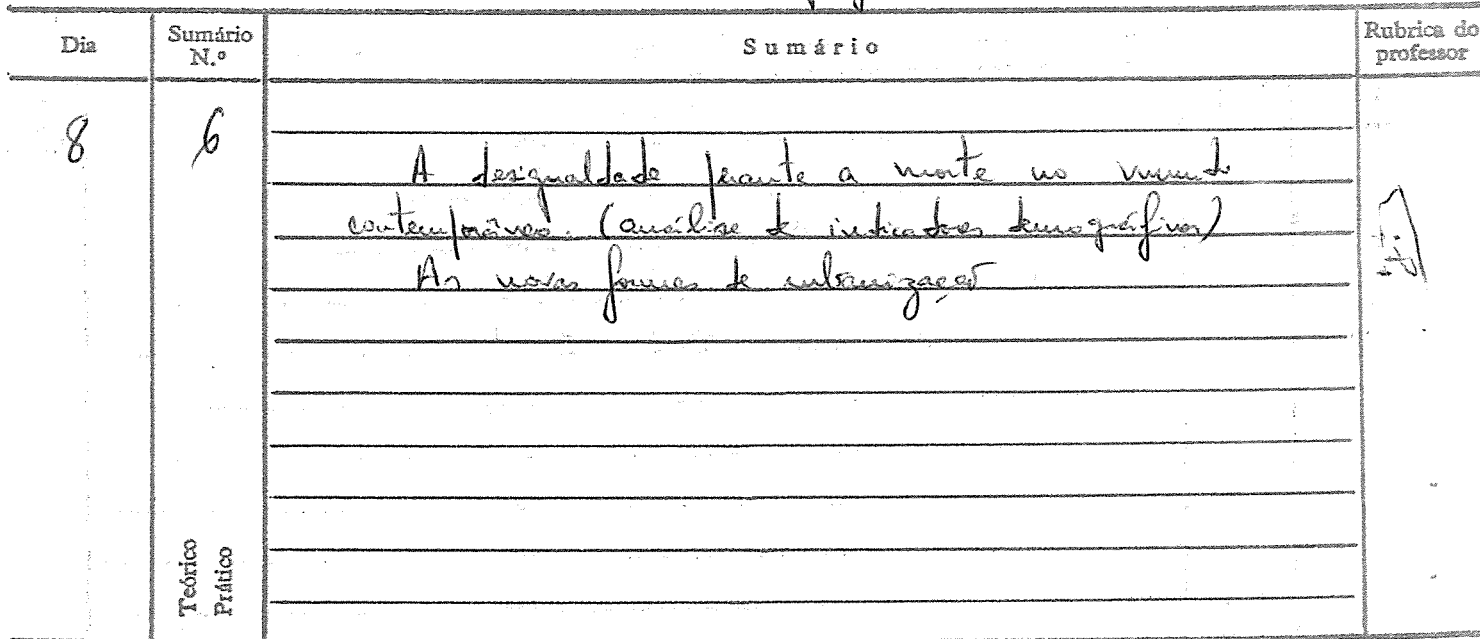 Dia
Sumário N.º
Sumário
Rubrica do professor
8
6
A desigualdade perante a morte no mundo
contemporâneo. (análise de indicadores demográficos)
As novas formas de urbanização
Teórico
Prático